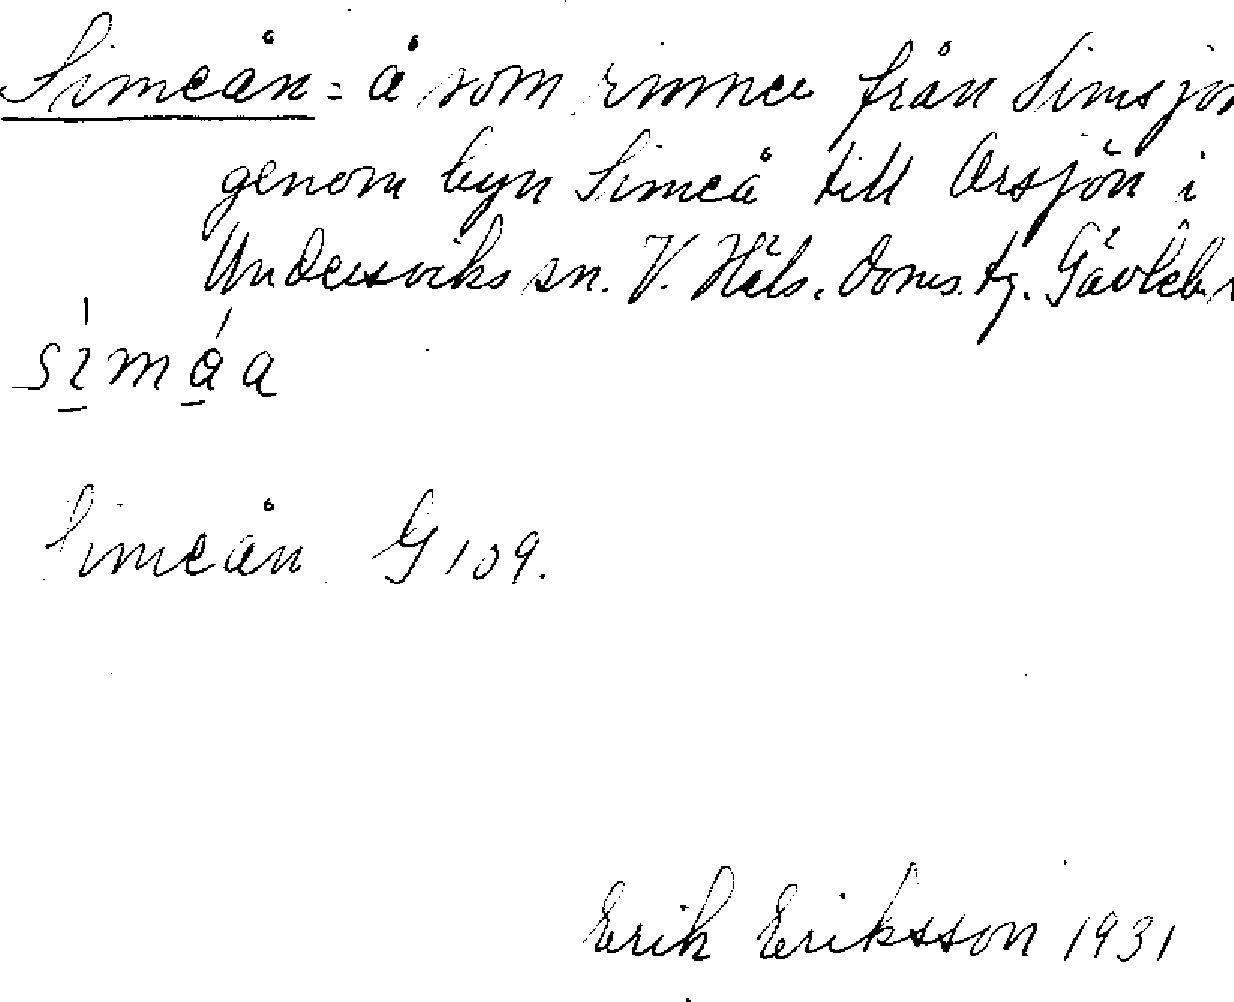 Simeån = å som rinner från Simsjön
genom byn Simeå till Orsjön i
Undersviks sn. V. Häls. doms. tg. Gävleb.
simåa
Simeån G 109.
Erik Eriksson 1931